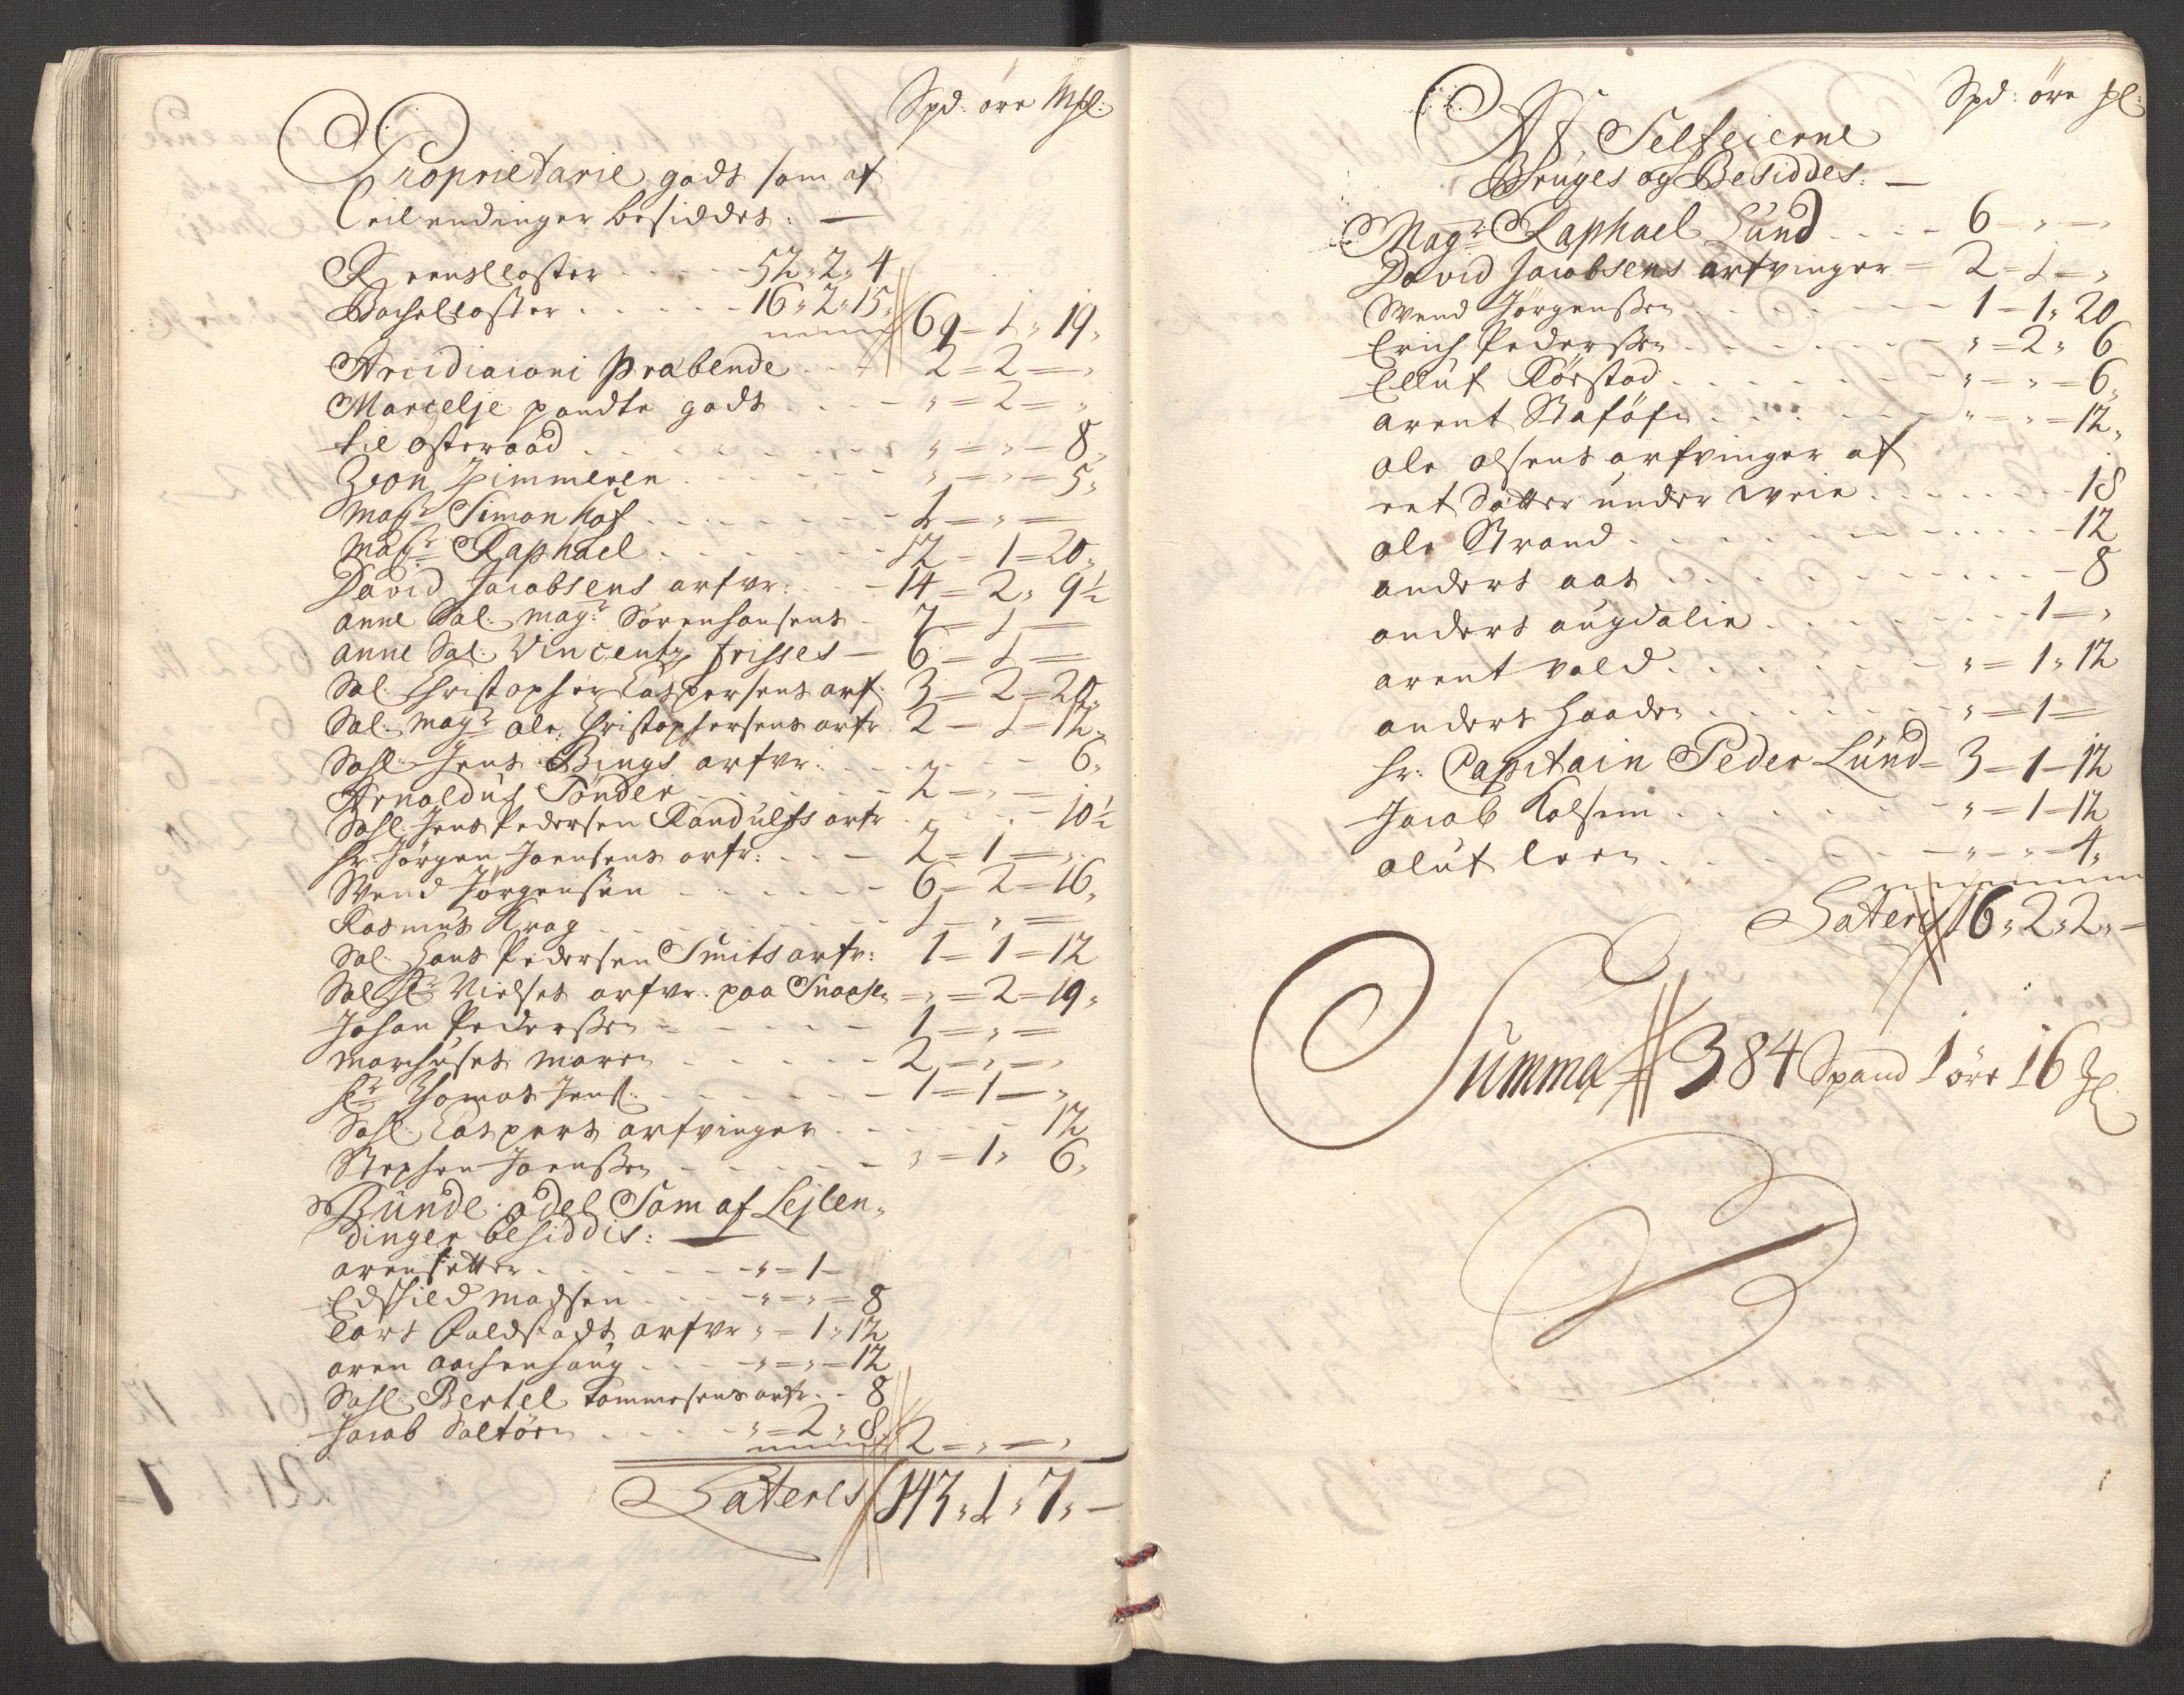 Spd: öre Mkl:
Proprietarie gods som af
Leilendinger besiddes: —
Reenskloster - - - - 52 " 2 " 4
Bachelloster . . . . - 16 " 2 " 15
69 - 1 " 19 "
Arcidiaconi Præbende . . - 2 = 2 = "
Marcelje pandte gods . . - " = 2 = "
til Österaad . . . . . " = " - 8 "
Zeon Zimmeren . . . . " = " = 5 "
Mag:r Simon Hof . . . - 1 = " =
Mag:r Raphael . . . . 12 - 1 = 20 "
David Jacobsens arfvr: - 14 = 2 " 9½
Anne Sal: Mag:r Sörenhansens - 7 = 1 =
Anne Sal: Vincentz Frisses — 6 - 1 =
Sal: Christopher Caspersens arf: 3 = 2 = 20 "
Sal: Mag:r Ole Christophersens arfr 2 - 1 = 12 "
Sahl: Jens Bings arfvr: . . . - 6 "
Arnoldus Tönder . . . - 2 = " =
Sahl: Jens Pedersen Randulfs arfr . . 10½
Hr: Jörgen Joensens arfr: . . - 2 = 1 = "
Svend Jörgensen . . . . - 6 = 2 = 16 "
Rasmus Krag . . . . . 1 = " =
Sal: Hans Pedersen Smits arfr: 1 = 1 = 12
Sal: Hr: Nielses arfvr: paa Snaasen = " = 2 = 19 "
Johan Pedersen - - - - - 1 = " =
Marchuses Maren - - - - 2 = " = "
Hr: Thomas Jens: - - - - - 1 = 1 — "
Sahl: Caspers arfvinger . . . - 12
Stephen Joensen - - - - - " = 1 " 6 "
Bunde odel Som af Lejlen,
dinger besiddis: —
Arensetter . . . . . - " = 1 -
Edskild Madsen . . . - " = " = 8
Lars Faldstads arfvr " = 1 " 12
Oren Aachenhaug . . . - " = " = 12
Sahl: Bertel Tommesens arfr: . - 8
Jacob Saltöen . . . . - " = 2 " 8 2 = " = "
Lateris 143 " 1 " 7 " -
Spd: öre Kl:
Af Selfeierne
Bruges og Besiddes: —
Mag:r Raphael Lund . . . - 6 - " - "
David Jacobsens arfvinger = 2 = 1 = "
Svend Jörgensen . . . . . - 1 - 1 " 20
Erich Pedersen . . . . . . - " = 2 " 6
Elluf Rörstad . . . . . . - " = " = 6 "
Arent Staföen . . . . . " = " = 12 "
Ole Olsens arfvinger af
ret Sætter under Weie . . . . . - 18
Ole Strand . . . . . . . . . - 12
Anders Aas . . . . . . . . . - 8
Anders Augdalie . . . . . . . - 1 = "
Arent Vold . . . . . . . " = 1 " 12
Anders Haaden . . . . . . - " = 1 =
Hr: Capitain Peder Lund = 3 = 1 - 12
Jacob Kolsem . . . . . . - " = 1 - 12
Oluf Leen . . . . . . - " - " - 4 "
Lateris 16 " 2 " 2 " -
Summa 384 Spand 1 öre 16 Kl